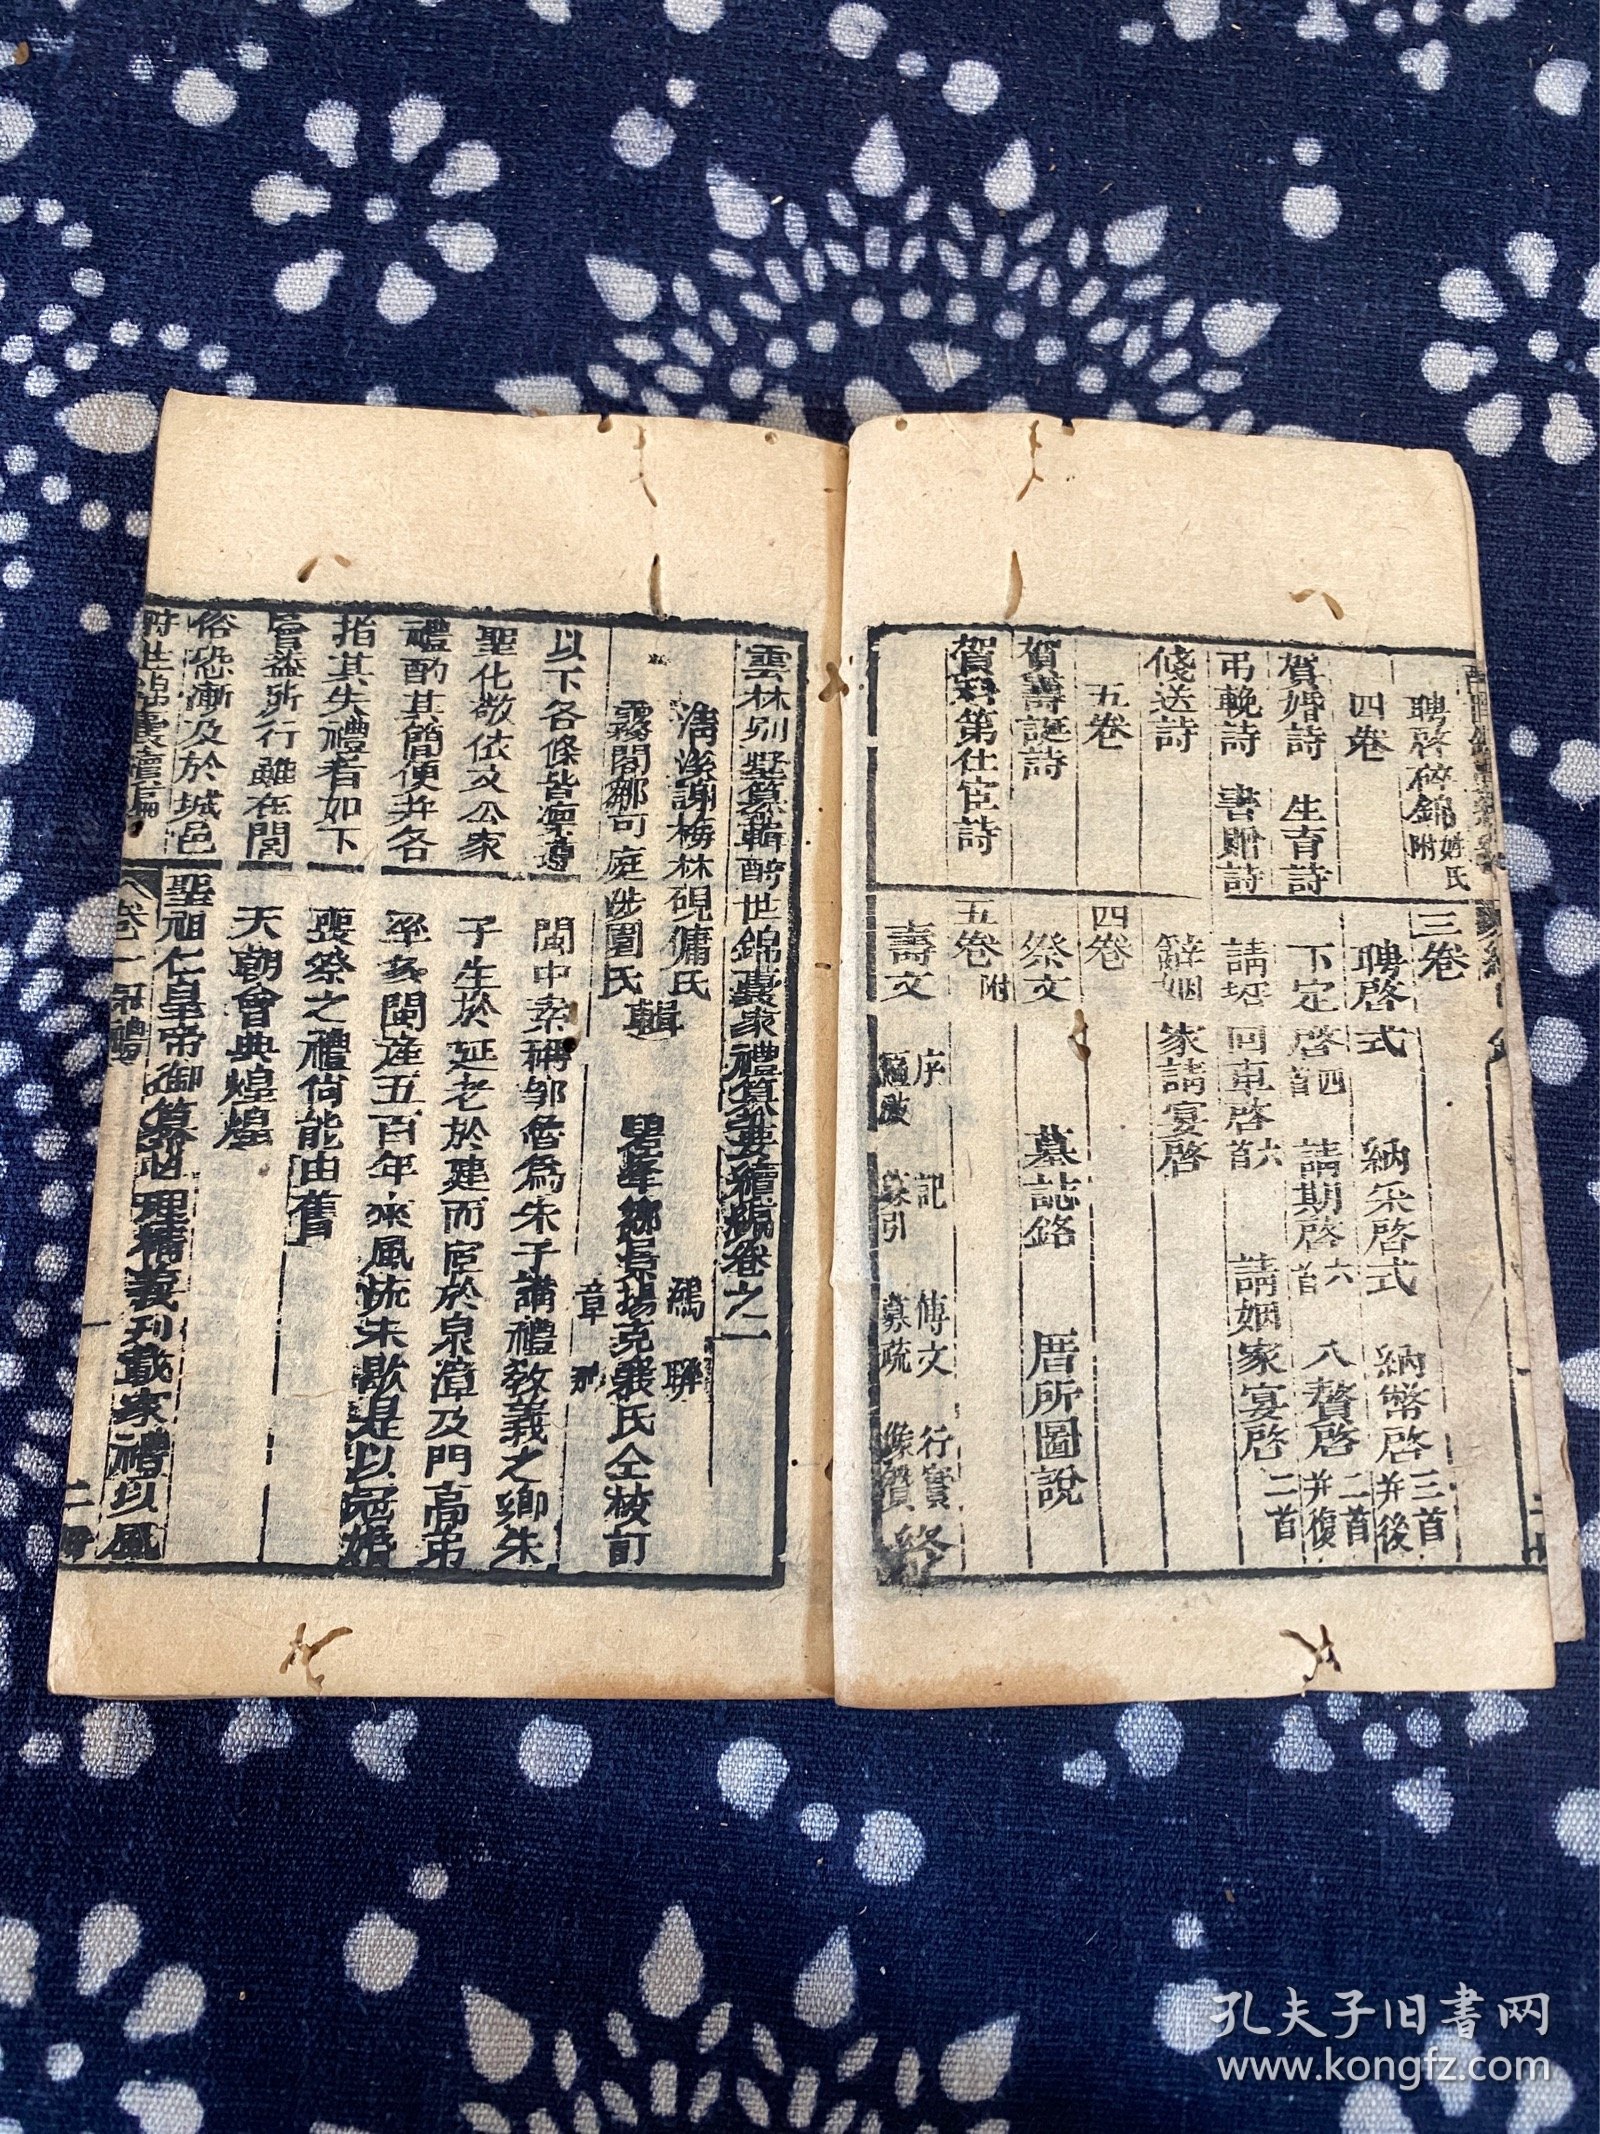 聘啓碎錦附姓氏
四卷
賀婚詩 生育詩
弔輓詩 書贈詩
餞送詩
五卷
賀壽誕詩
賀登科第仕宦詩
三卷
聘啓式 納采啓式 納幣啓三首
下定啓四首 請期啓六首 入贅啓二首
請 回車啓六首 請姻家宴啓二首
辭姻家請宴啓
四卷
祭文 墓誌銘 厝所圖說
五卷附
壽文 序 記 傳文 行實
募引 募疏 終
雲林別墅纂輯酬世錦囊家禮纂要續編卷之一
清溪謝梅林硯傭氏
霧閣鄒可庭涉園氏 輯
碧峯鄉景揚克襄氏仝校訂
以下各條皆凜遵
聖化敬依文公家
禮酌其簡便并各
指其失禮者如下
層益所行雖在閭
俗恐漸及於城邑
閩中素稱鄒魯為朱子講禮教義之鄉朱
子生於延老於建而宦於泉漳及門高弟
率多閩產五百年來風流未歇是以冠婚
喪祭之禮尚能由舊
天朝會典煌煌
聖祖仁皇帝御纂性理精義刊載家禮以風
卷一 冠禮
孔夫子旧书网
www.kongfz.com